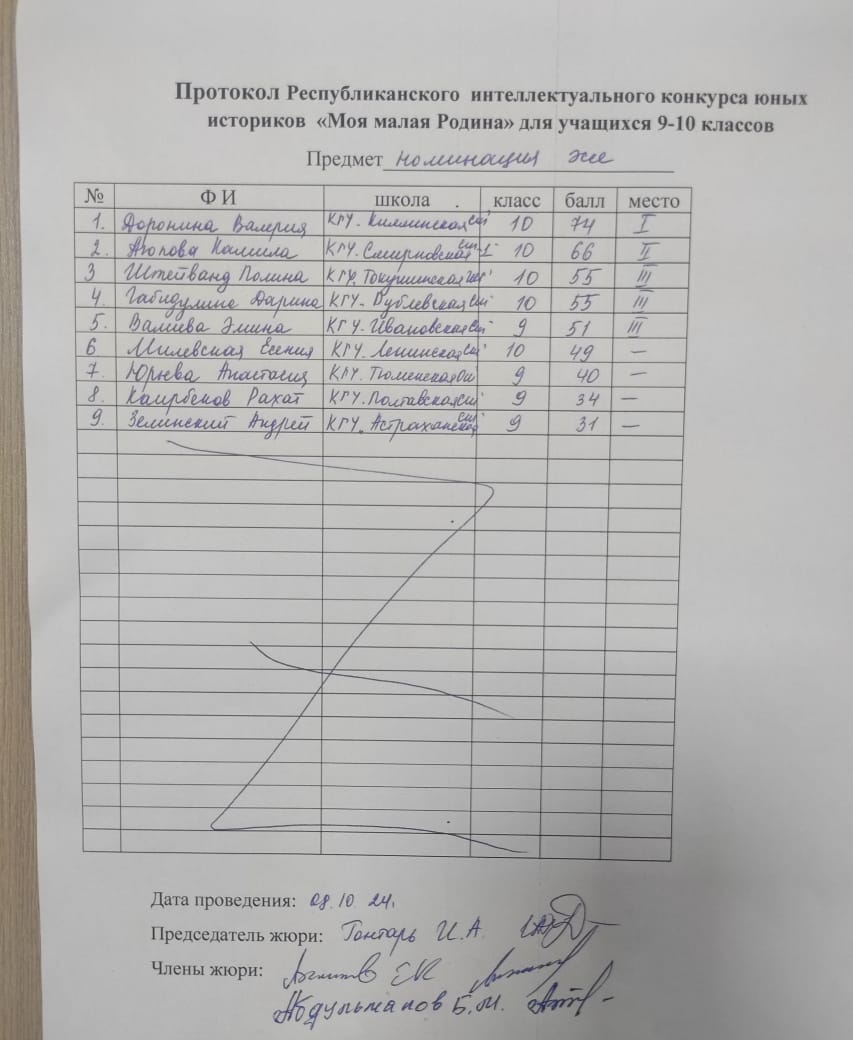 Протокол Республиканского интеллектуального конкурса юных
историков «Моя малая Родина» для учащихся 9-10 классов
Предмет номинация эссе
№ Ф И школа класс балл место
1. Доронина Валерия КГУ. Киялинская сш 10 74 I
2. Агопова Камила КГУ. Смирновская сш-1 10 66 II
3 Штейванд Полина КГУ. Токушинская 10 55 III
4. Габидулина Дарина КГУ. Рублевская сш 10 55 III
5. Валиева Эмина КГУ. Ивановская сш 9 51 III
6 Милевская Есения КГУ. Ленинская сш 10 49 —
7. Юрьева Анастасия КГУ. Тюменская ош 9 40 —
8. Каирбеков Рахат КГУ. Полтавская сш 9 34 —
9. Зелинский Андрей КГУ. Астраханская сш 9 31 —
Дата проведения: 08.10.24.
Председатель жюри: Гонтарь И.А.
Члены жюри: Е.К
Абдульманов Б.М.